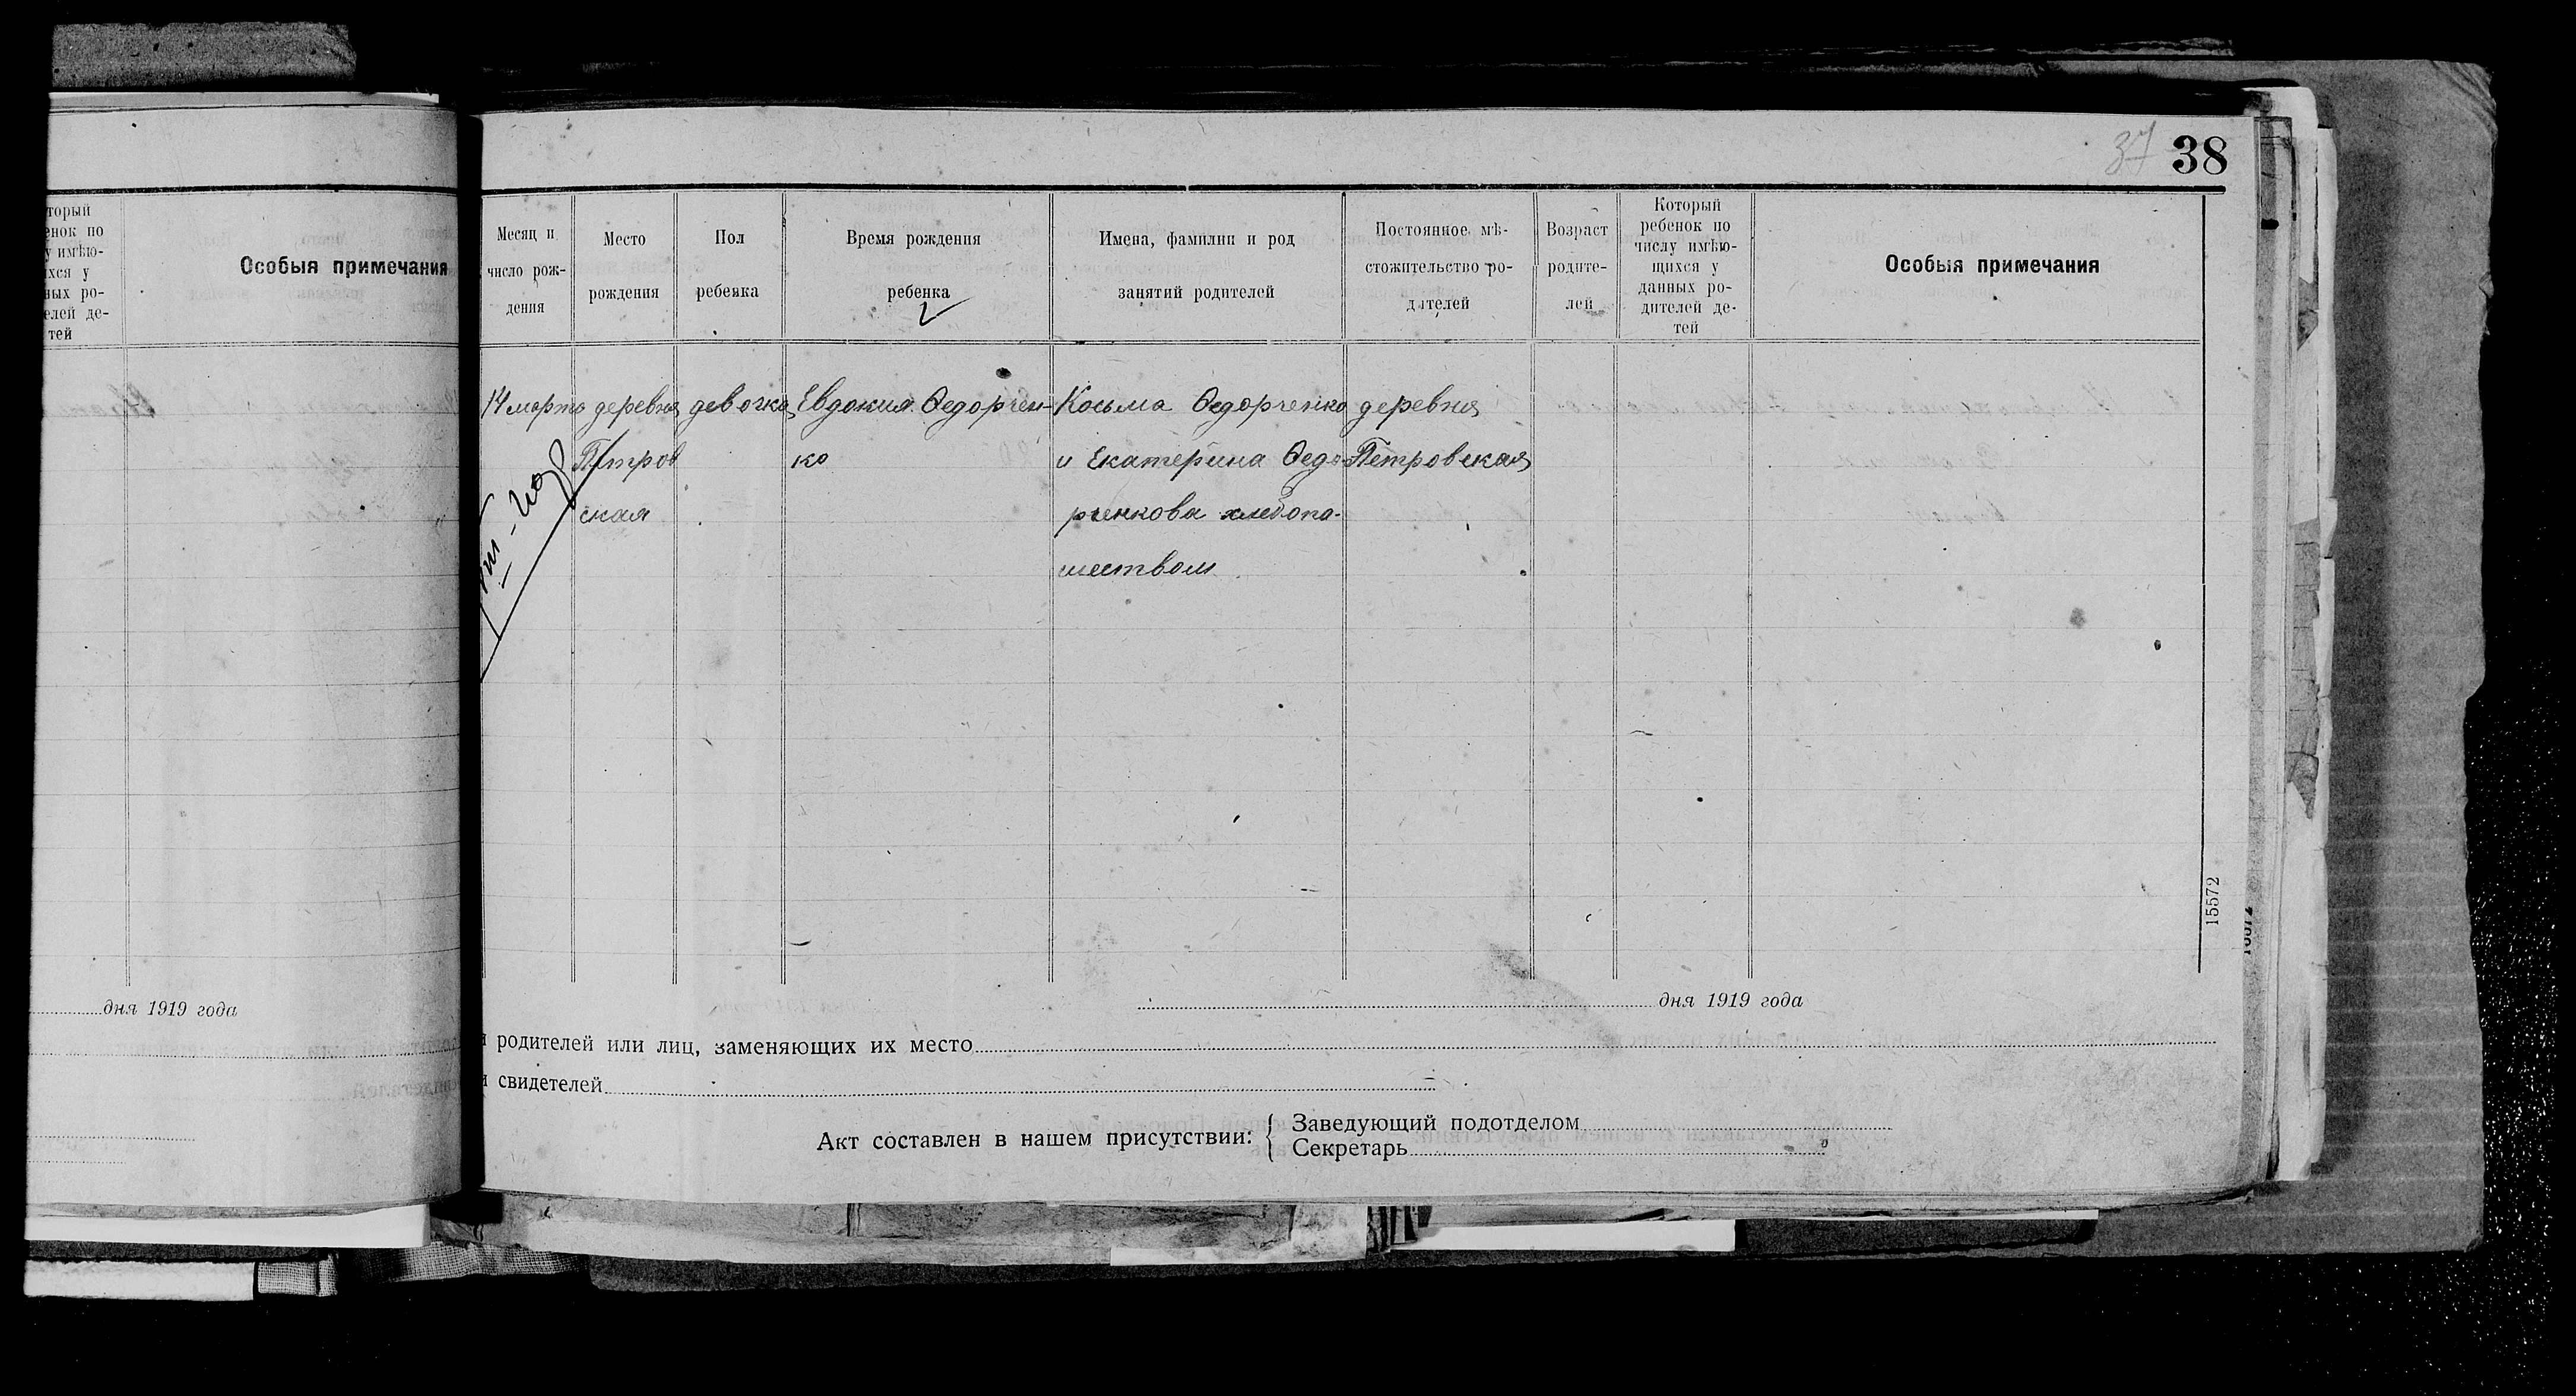 37 38
торый
енок по
у имѣю-
ихся у
ных ро-
елей де-
тей
Особыя примечания
Месяц и
число рож-
дения
Место
рождения
Пол
ребенка
Время рождения
ребенка
Имена, фамилии и род
занятий родителей
Постоянное мѣ-
стожительство ро-
дителей
Возраст
родите-
лей
Который
ребенок по
числу имѣю-
щихся у
данных ро-
дителей де-
тей
Особыя примечания
14 марта деревня девочка Евдокия Ѳедорчен- Косьма Ѳедорченко деревня
Петров ко и Екатерина Ѳедо- Петровская
ская рченкова хлебопа-
шеством
15572
дня 1919 года
дня 1919 года
родителей или лиц, заменяющих их место
свидетелей
Акт составлен в нашем присутствии: { Заведующий подотделом
Секретарь